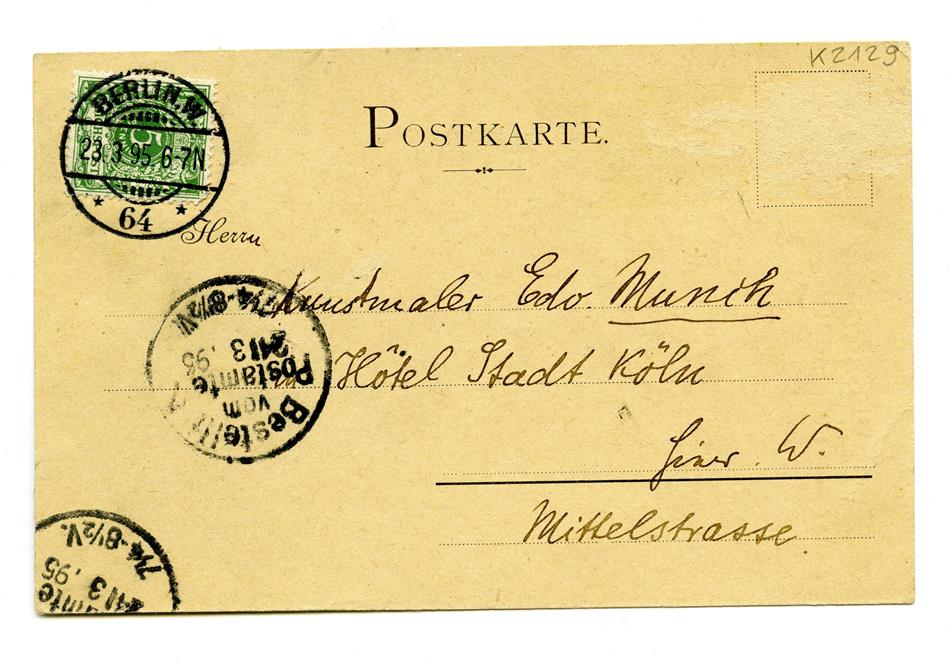 K2129
POSTKARTE.
BERLIN.W.
23 3 95 6-7N
* 64 *
Herrn
Kunstmaler Edv. Munch
in Hôtel Stadt Köln
Hier. W.
Mittelstrasse.
Bestellt
vom
Postamte
24/3.95
7¼-8½V.
7¼-8½V.
24/3.95